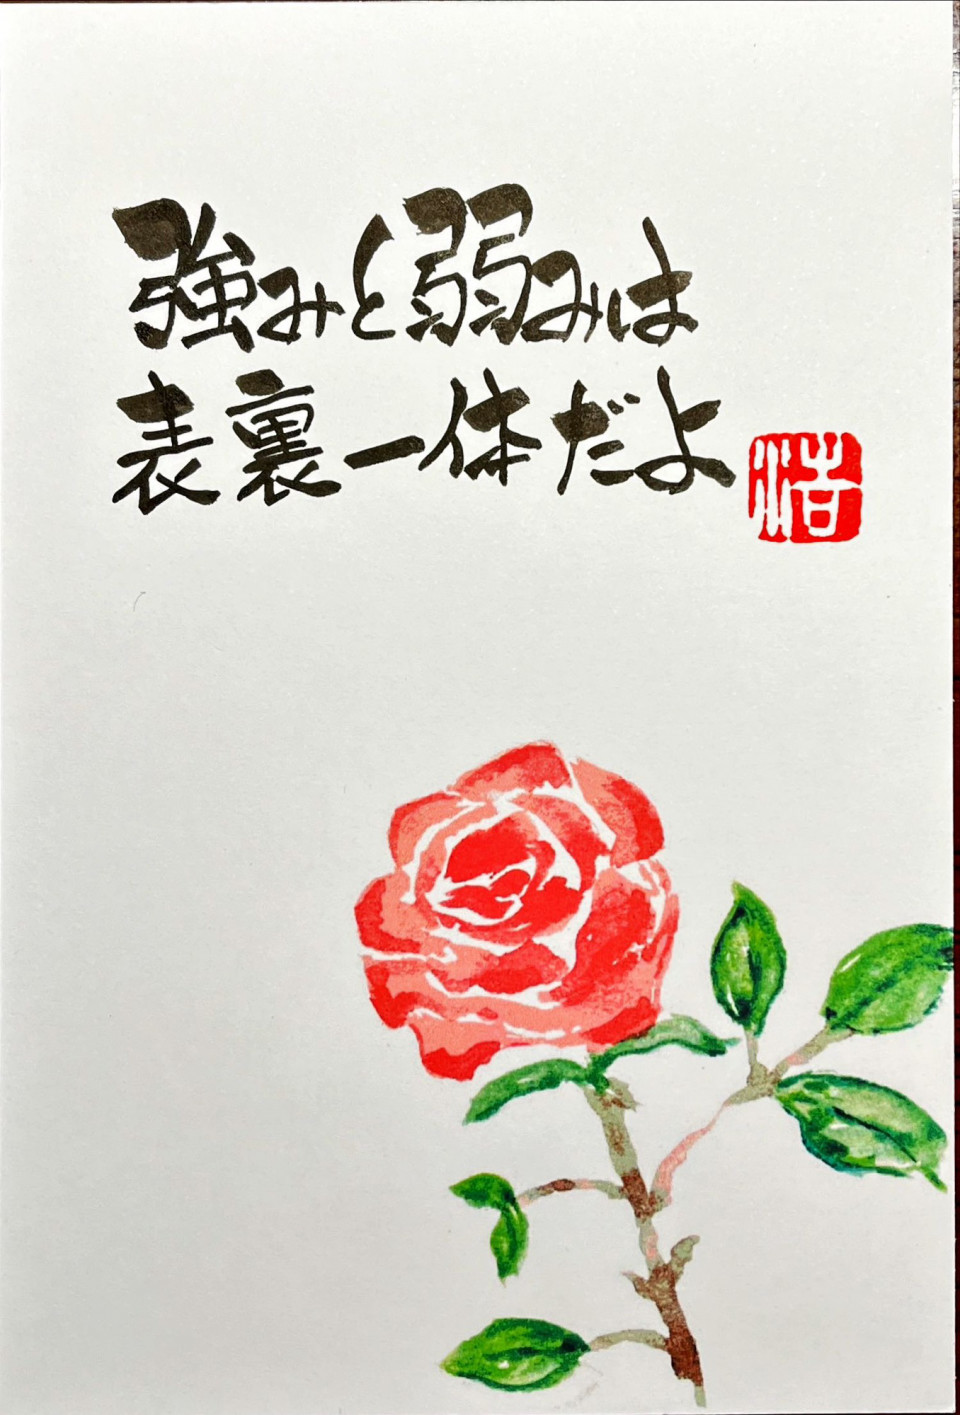 強みと弱みは
表裏一体だよ
浩